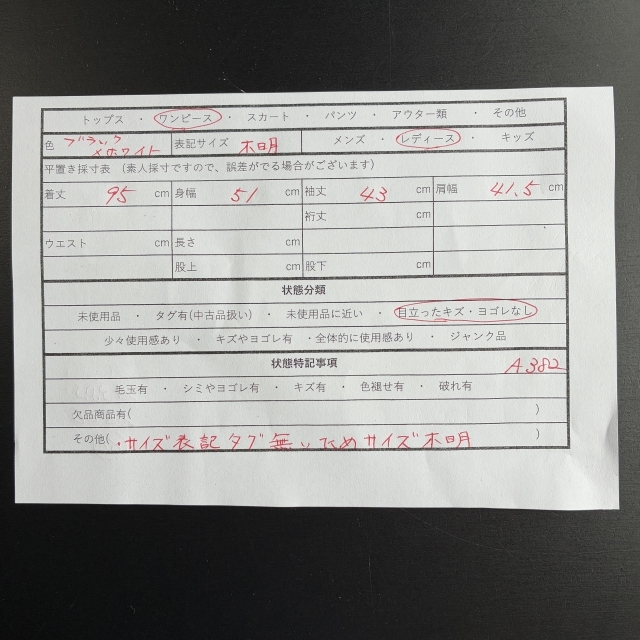 トップス ・ ワンピース ・ スカート ・ パンツ ・ アウター類 ・ その他
色 ブラック×ホワイト 表記サイズ 不明 メンズ ・ レディース ・ キッズ
平置き採寸表 (素人採寸ですので、誤差がでる場合がございます)
着丈 95 cm 身幅 51 cm 袖丈 43 cm 肩幅 41.5 cm
裄丈 cm
ウエスト cm 長さ cm
股上 cm 股下 cm
状態分類
未使用品 ・ タグ有(中古品扱い) ・ 未使用品に近い ・ 目立ったキズ・ヨゴレなし
少々使用感あり ・ キズやヨゴレ有 ・全体的に使用感あり ・ ジャンク品
状態特記事項 A382
毛玉有 ・ シミやヨゴレ有 ・ キズ有 ・ 色褪せ有 ・ 破れ有
欠品商品有( )
その他( ・サイズ表記タグ無いためサイズ不明 )